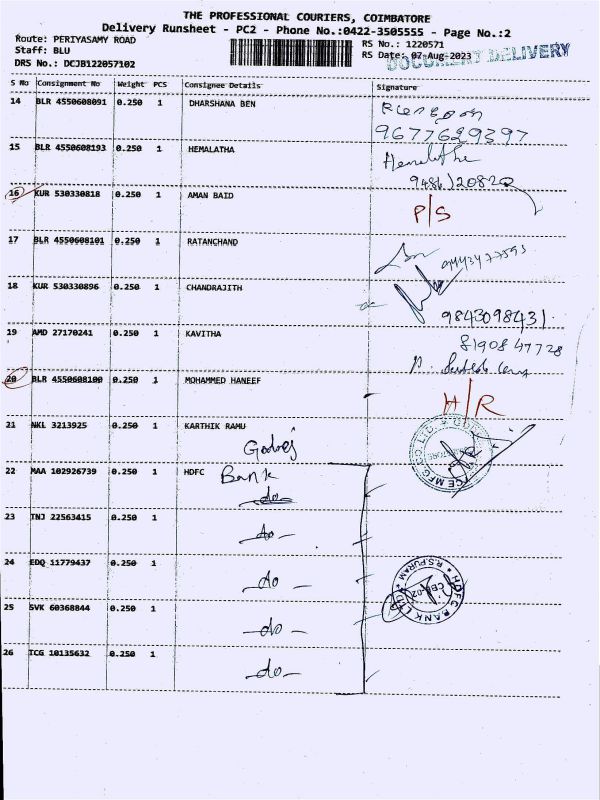 THE PROFESSIONAL COURIERS, COIMBATORE
Delivery Runsheet - PC2 - Phone No.:0422-3505555 - Page No.:2
Route: PERIYASAMY ROAD
RS No.: 1220571
Staff: BLU
RS Date: 07-Aug-2023
DOCUMENT DELIVERY
DRS No.: DCJB122057102
S No Consignment No Weight PCS Consignee Details Signature
14 BLR 4550608091 0.250 1 DHARSHANA BEN
9677629397
15 BLR 4550608193 0.250 1 HEMALATHA Hemalatha
9486120820
16 KUR 530330818 0.250 1 AMAN BAID P/S
17 BLR 4550608101 0.250 1 RATANCHAND
9443477593
18 KUR 530330896 0.250 1 CHANDRAJITH
9843098431
19 AMD 27170241 0.250 1 KAVITHA 8190847728
20 BLR 4550608100 0.250 1 MOHAMMED HANEEF H/R
21 NKL 3213925 0.250 1 KARTHIK RAMU
Godrej
22 MAA 102926739 0.250 1 HDFC Bank
do
23 TNJ 22563415 0.250 1 - do -
24 EDQ 11779437 0.250 1 - do -
HDFC BANK LTD * R.S.PURAM *
25 SVK 60368844 0.250 1 - do -
26 TCG 10135632 0.250 1 - do -